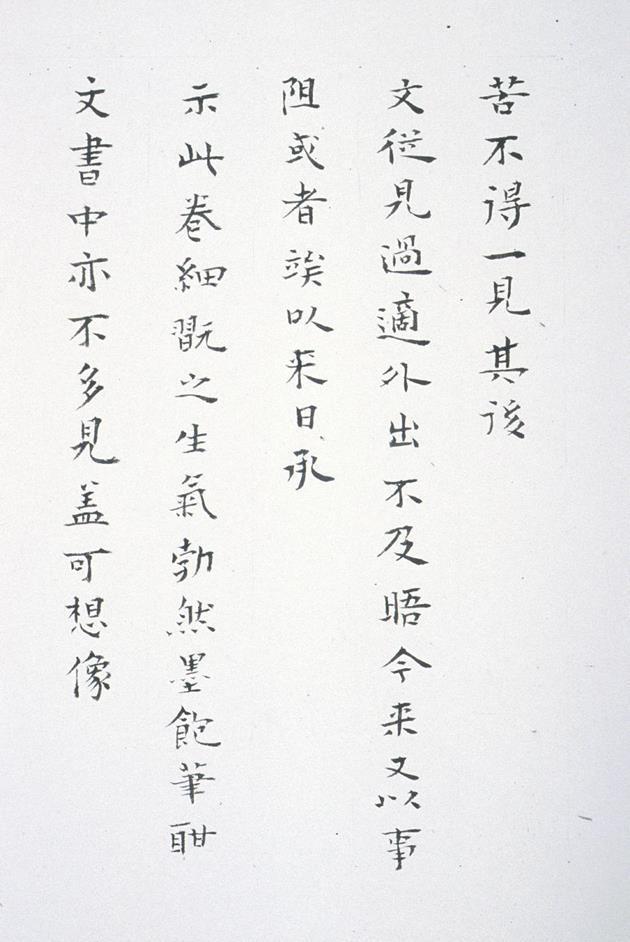 苦不得一見其後
文從見過適外出不及晤今来又以事
阻或者竢以来日承
示此卷細翫之生氣勃然墨飽筆酣
文書中亦不多見盖可想像